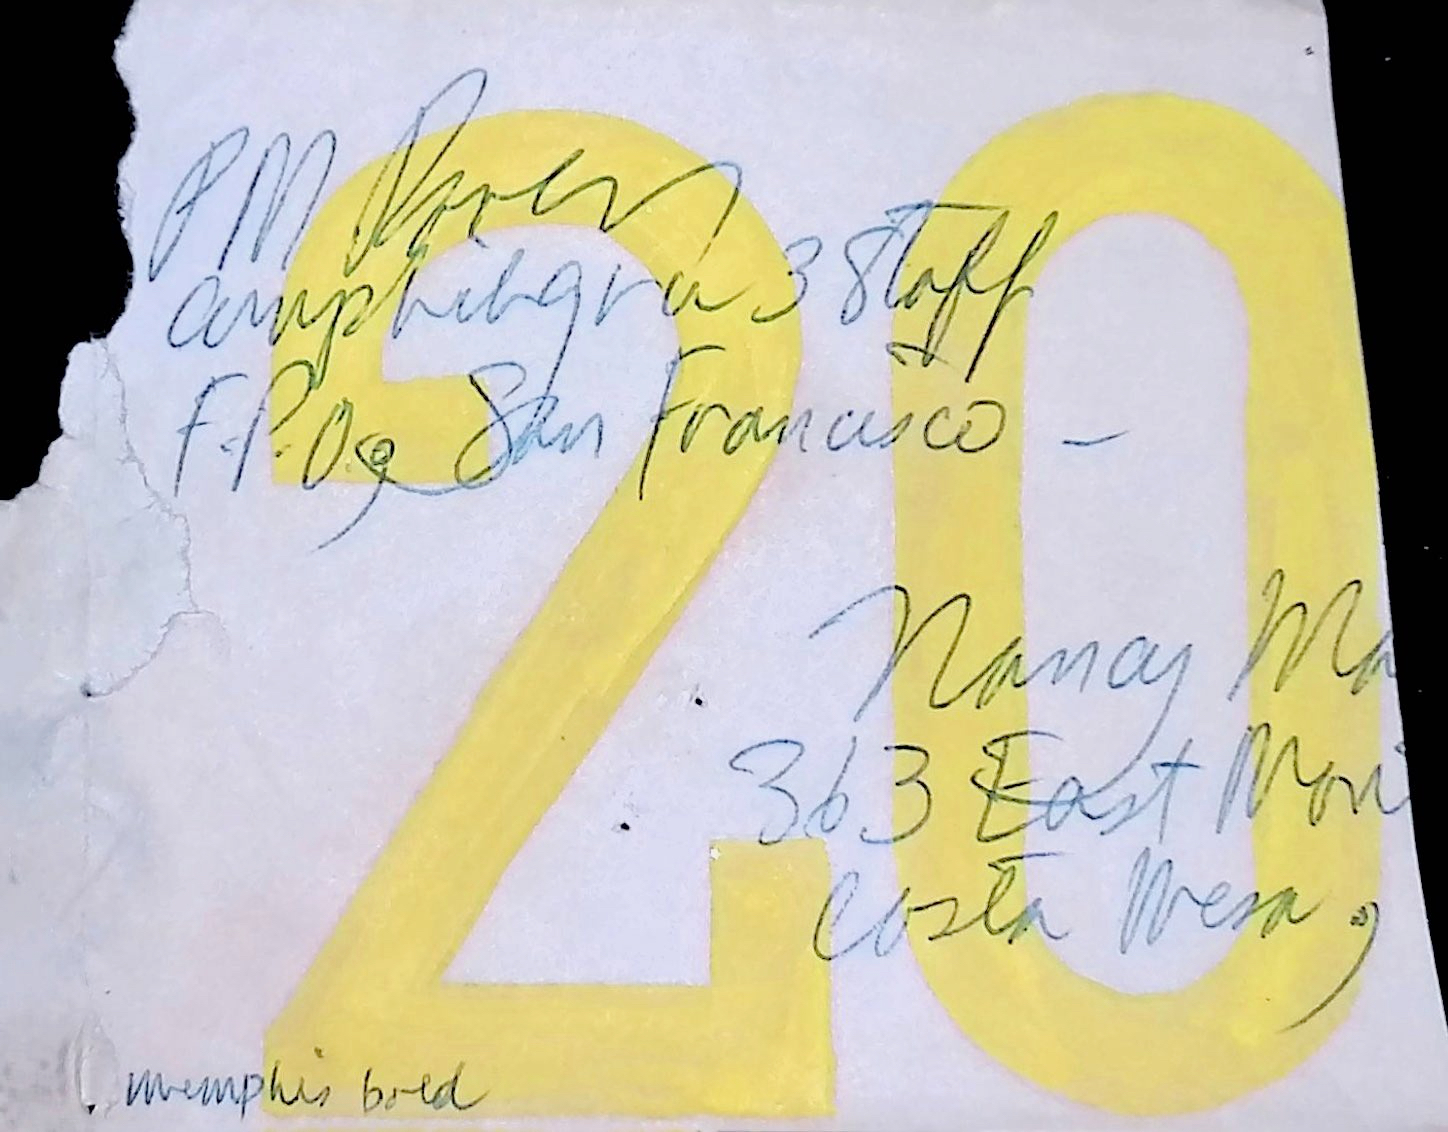 PM
3 Staff
F.P.O., San Francisco -
20
Nancy Ma
363 East
Costa Mesa,
memphis bold